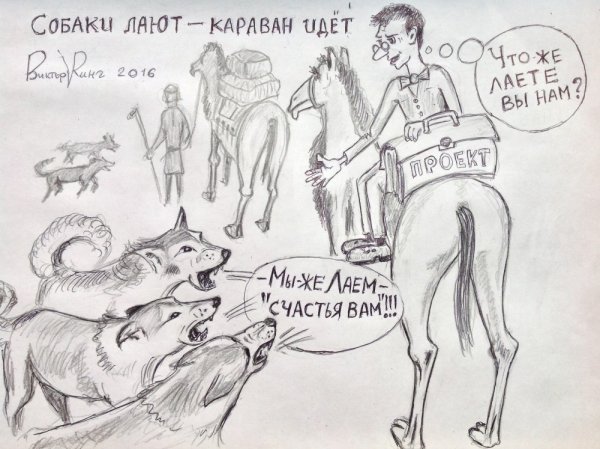 Собаки лают – караван идёт
Виктор Кинг 2016
Что же
лаете
вы нам?
ПРОЕКТ
– Мы же лаем –
"счастья вам"!!!